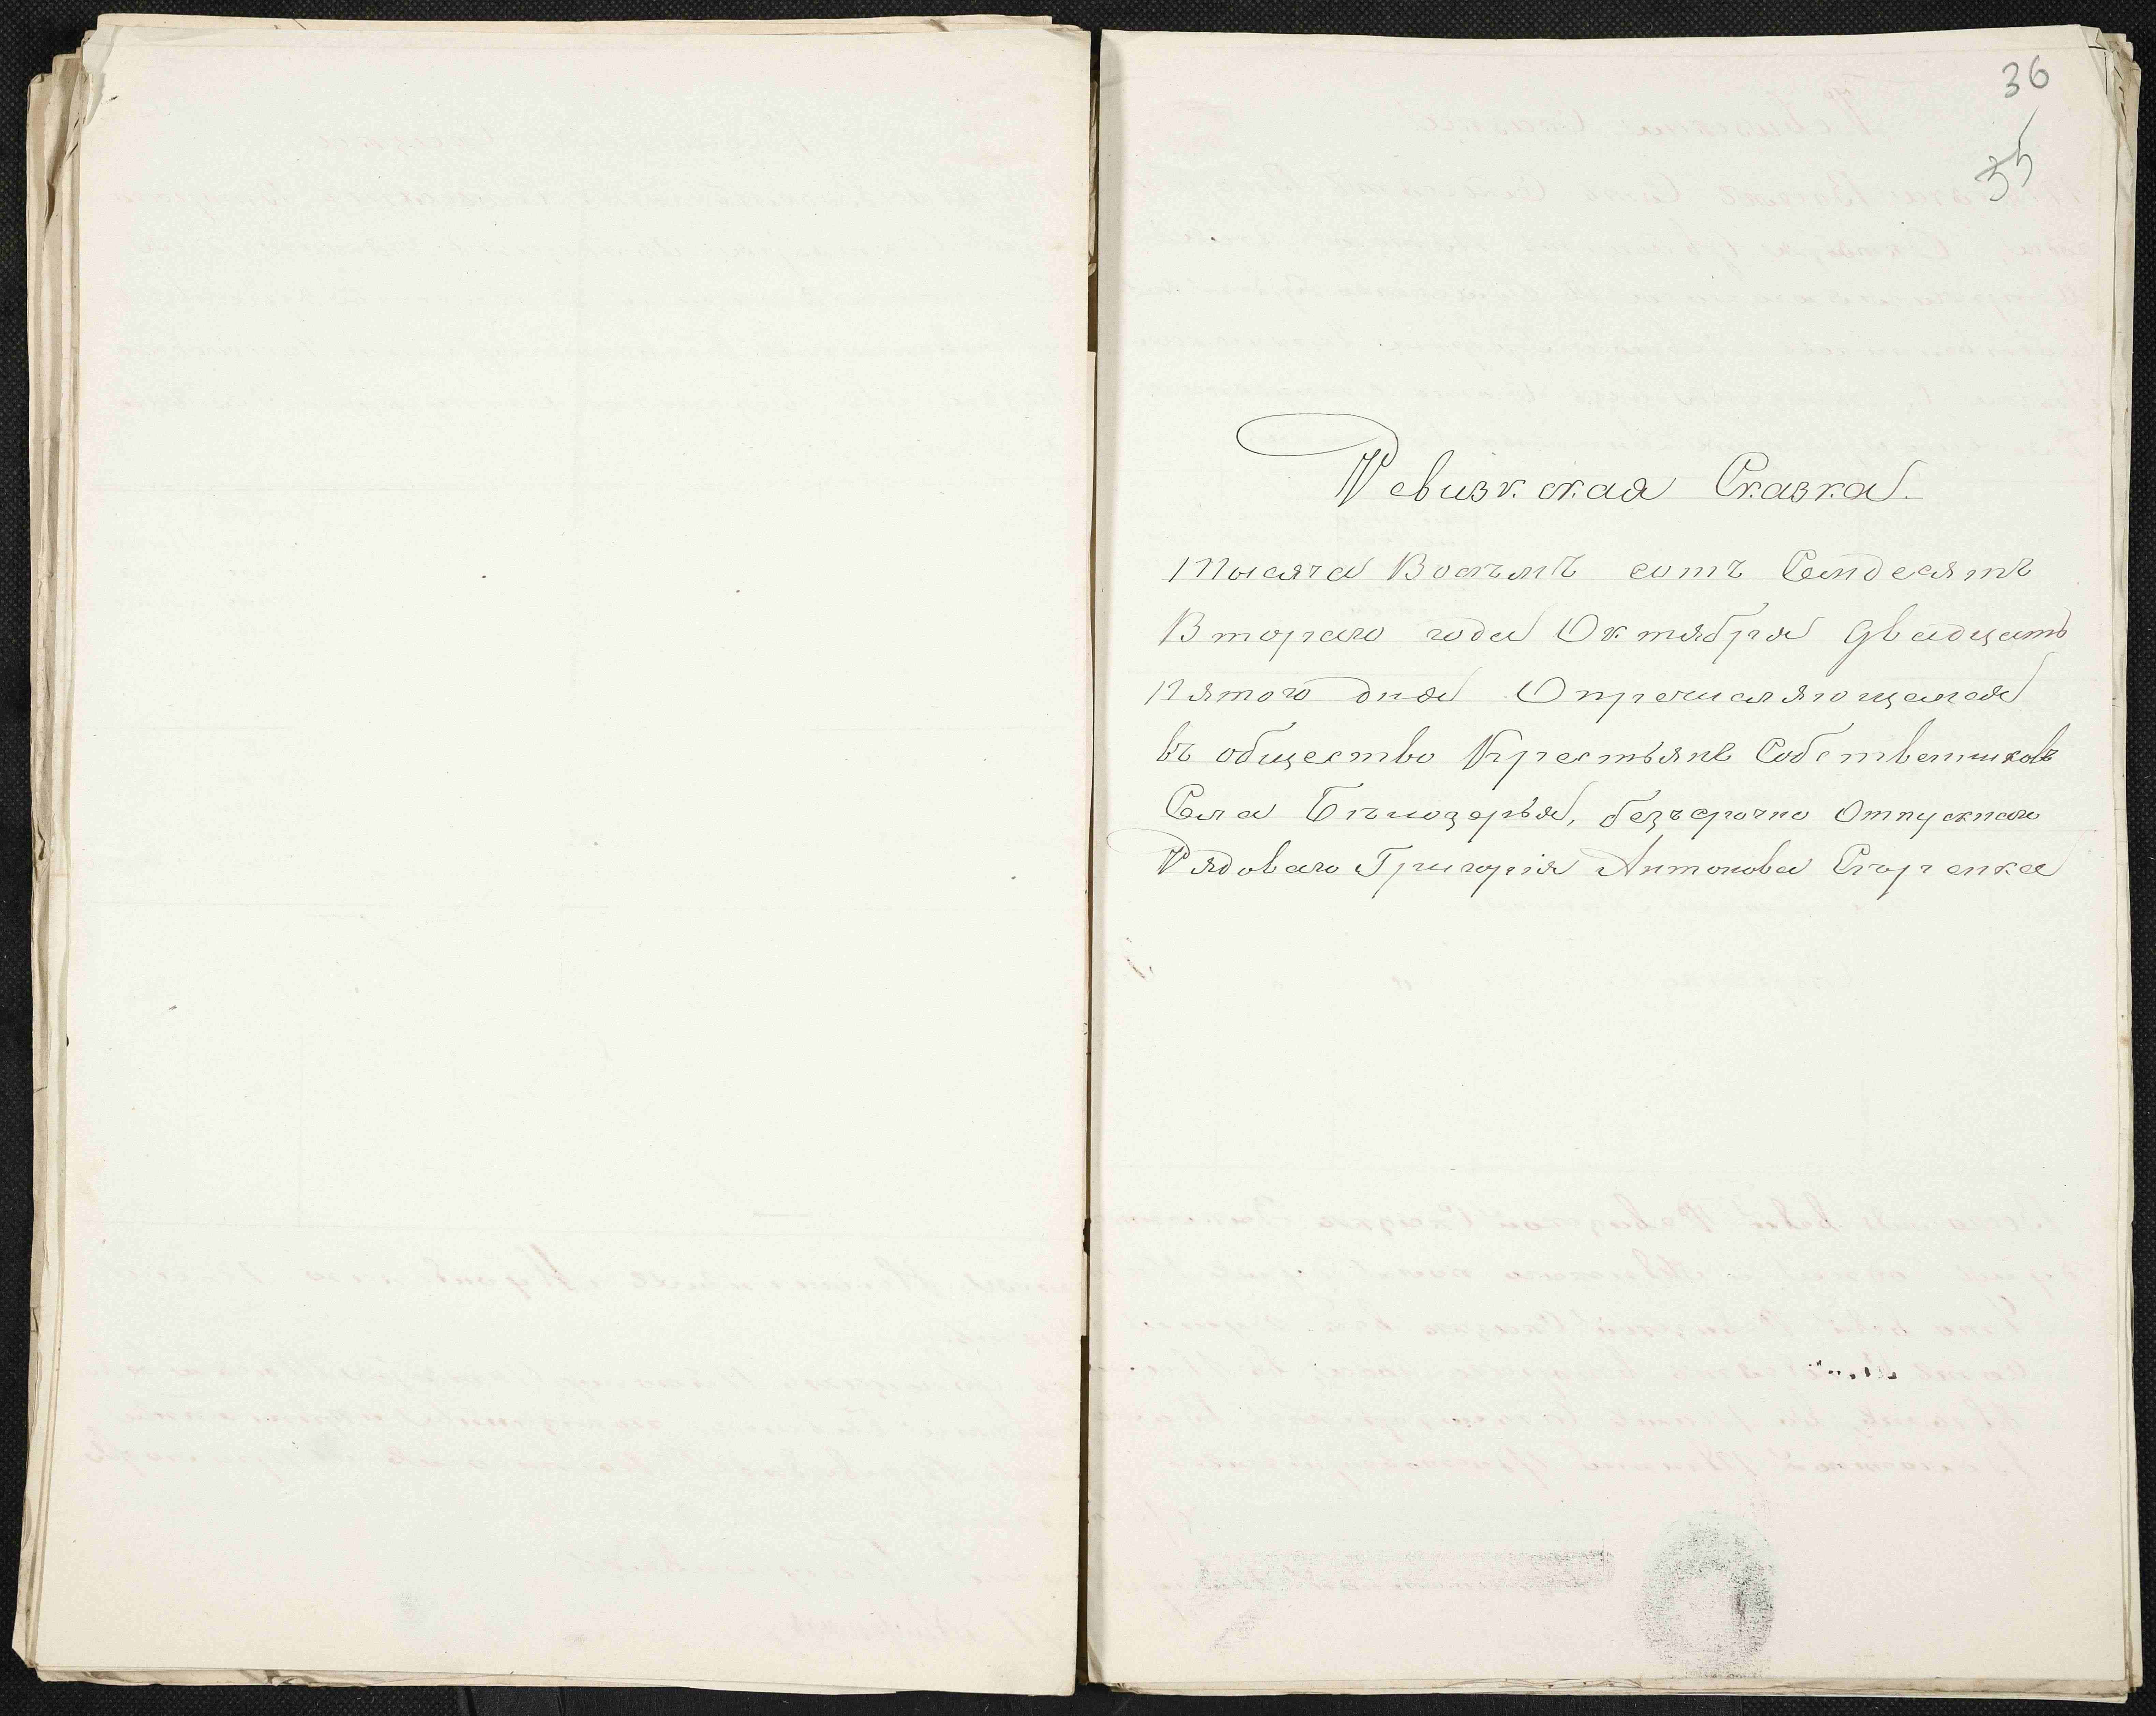 36
35
Ревизкская Сказка.
тысяча Восемъ сотъ Семдесятъ
Втораго года Октября двадцать
Пятого дня О пречисляющемся
въ общество Крестьянъ Собственниковъ
Села Бѣлозерья, безъсрочно отпускного
Рядоваго Григорія Антонова